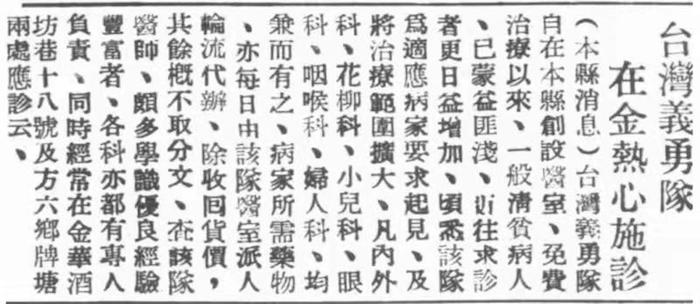 台灣義勇隊
在金熱心施診
(本縣消息)台灣義勇隊
自在本縣創設醫室、免費
治療以來、一般清貧病人
、已蒙益匪淺、近往求診
者更日益增加、頃悉該隊
為適應病家要求起見、及
將治療範圍擴大、凡內外
科、花柳科、小兒科、眼
科、咽喉科、婦人科、均
兼而有之、病家所需藥物
、亦每日由該隊醫室派人
輪流代辦、除收回貨價，
其餘概不取分文、查該隊
醫師、頗多學識優良經驗
豐富者、各科亦都有專人
負責、同時經常在金華酒
坊巷十八號及方六鄉牌塘
兩處應診云、